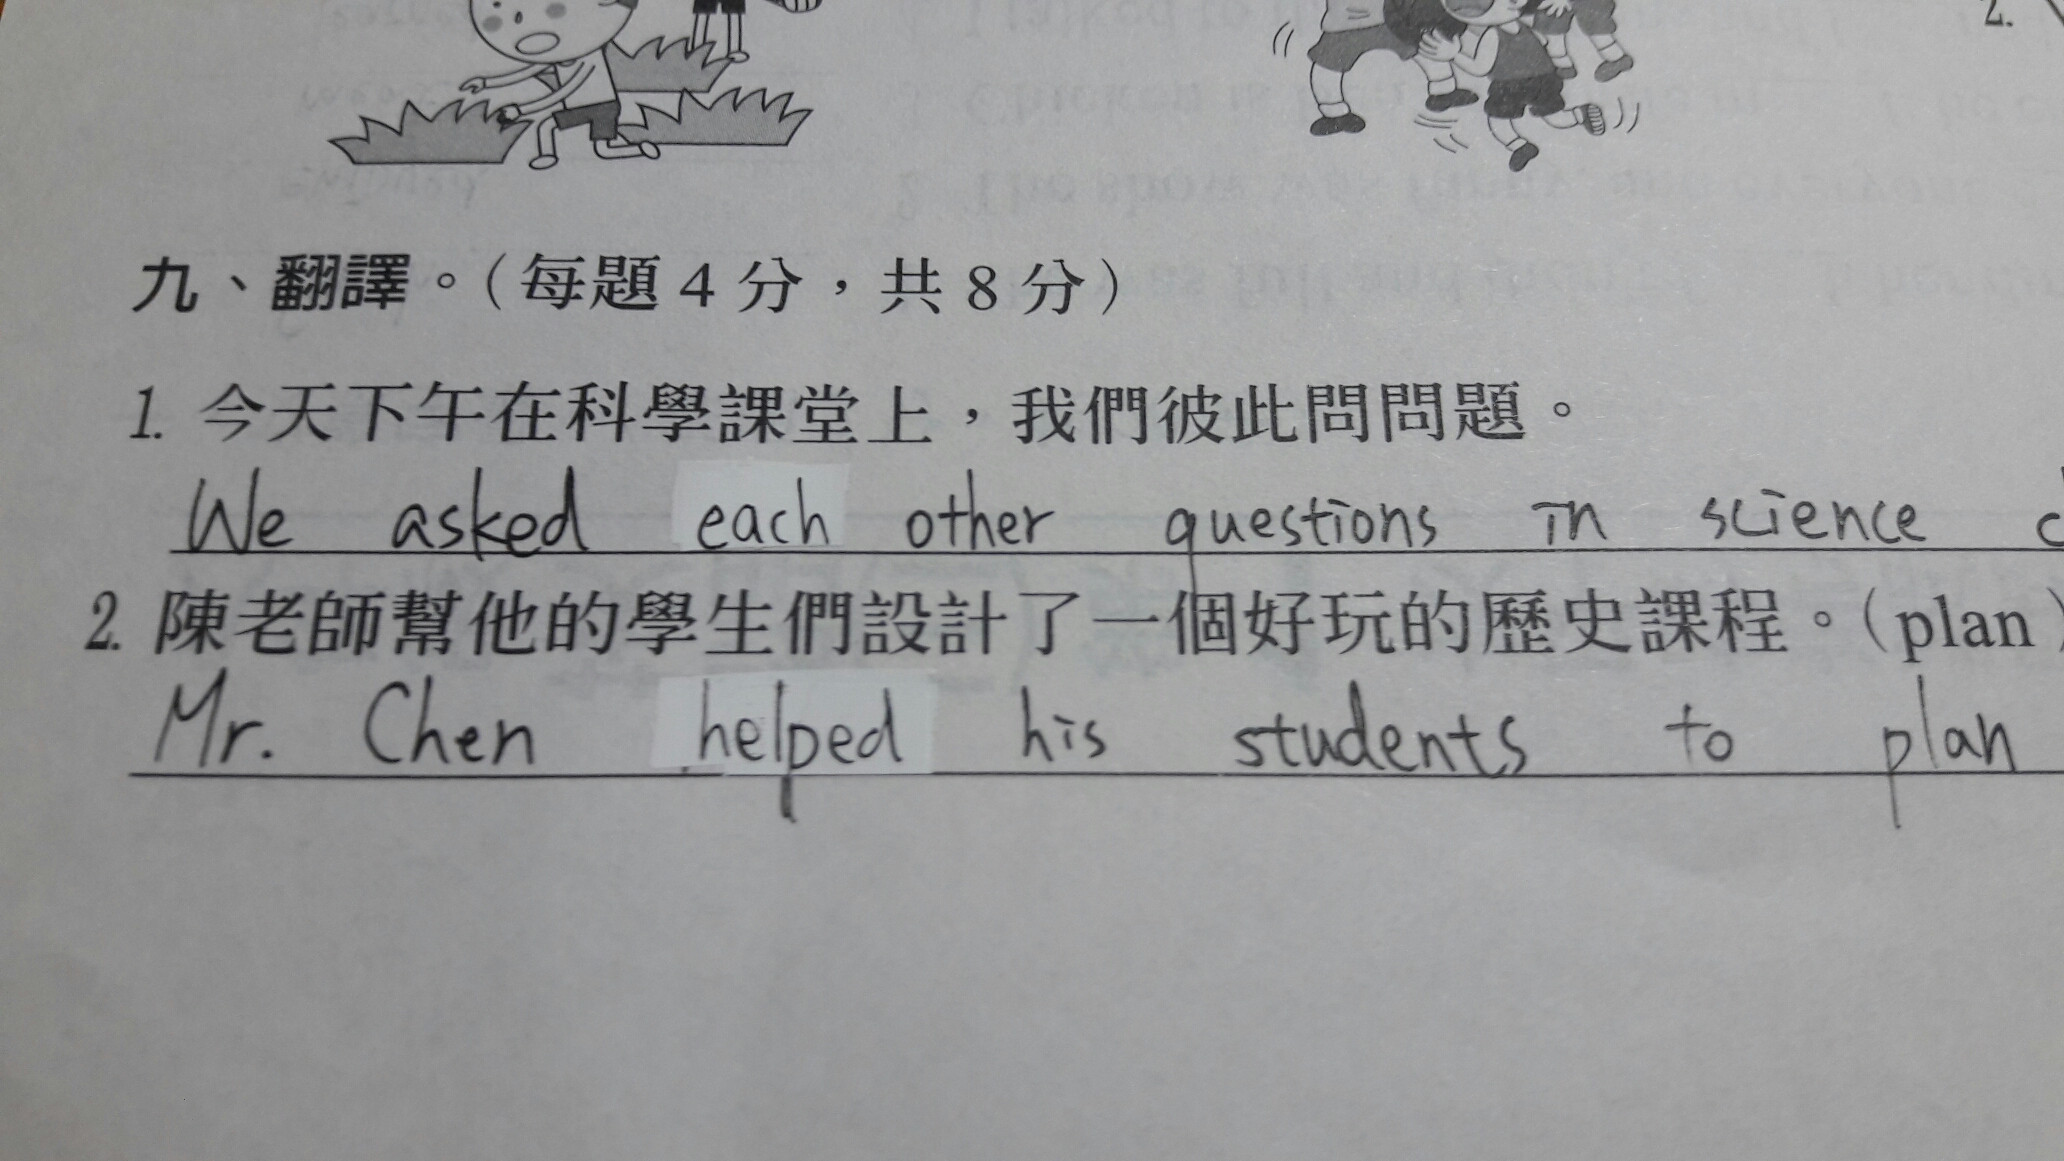 2.
九、翻譯。(每題4分,共8分)
1. 今天下午在科學課堂上,我們彼此問問題。
We asked each other questions in science
2. 陳老師幫他的學生們設計了一個好玩的歷史課程。(plan)
Mr. Chen helped his students to plan